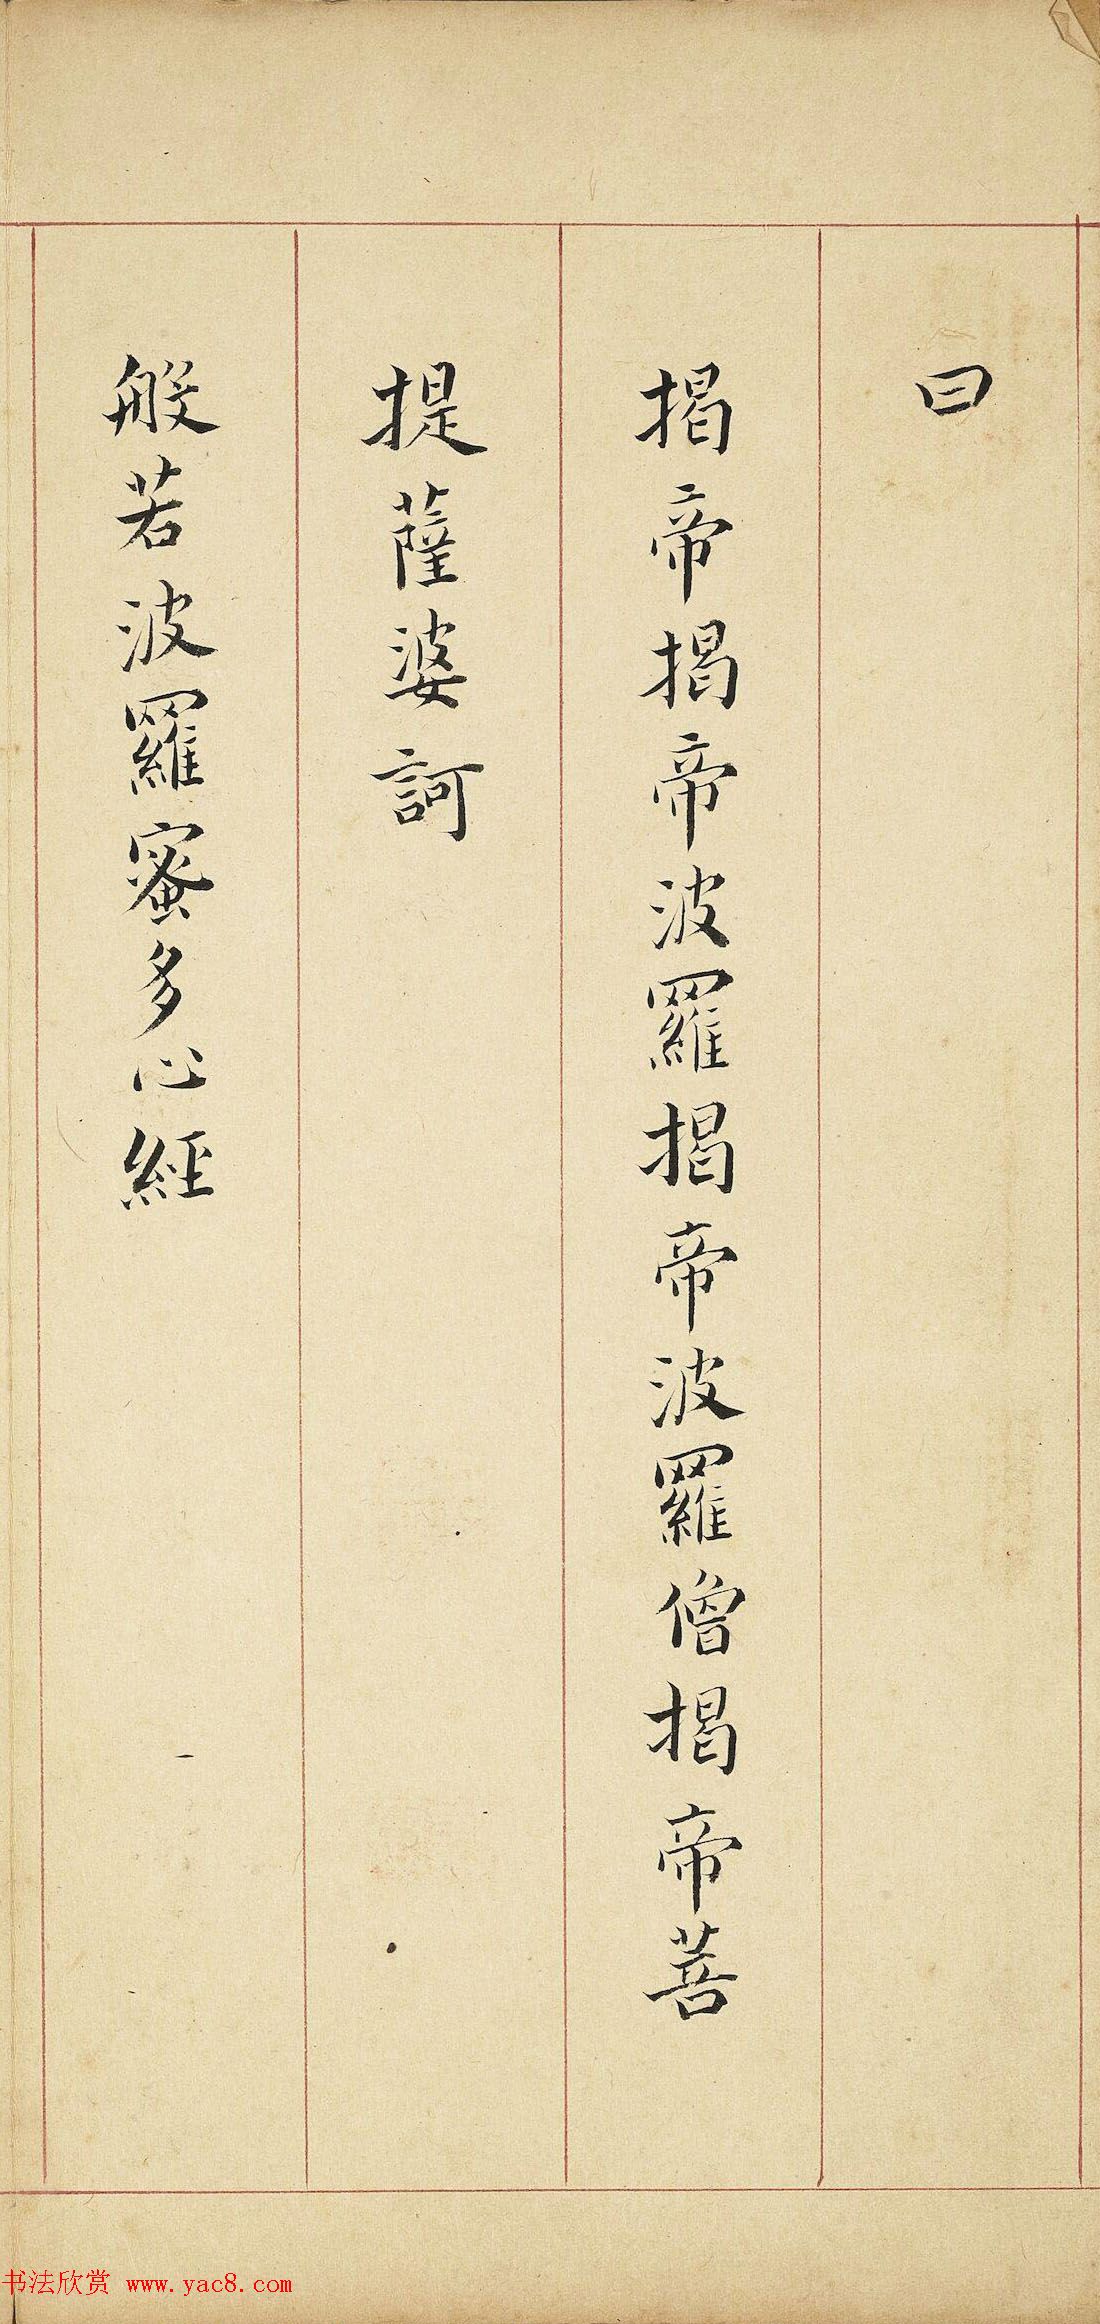 曰
揭帝揭帝波羅揭帝波羅僧揭帝菩
提薩婆訶
般若波羅蜜多心經
书法欣赏 www.yac8.com